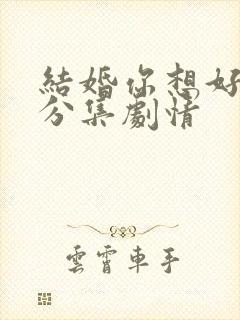 結婚你想好
分集劇情
雲霄車手